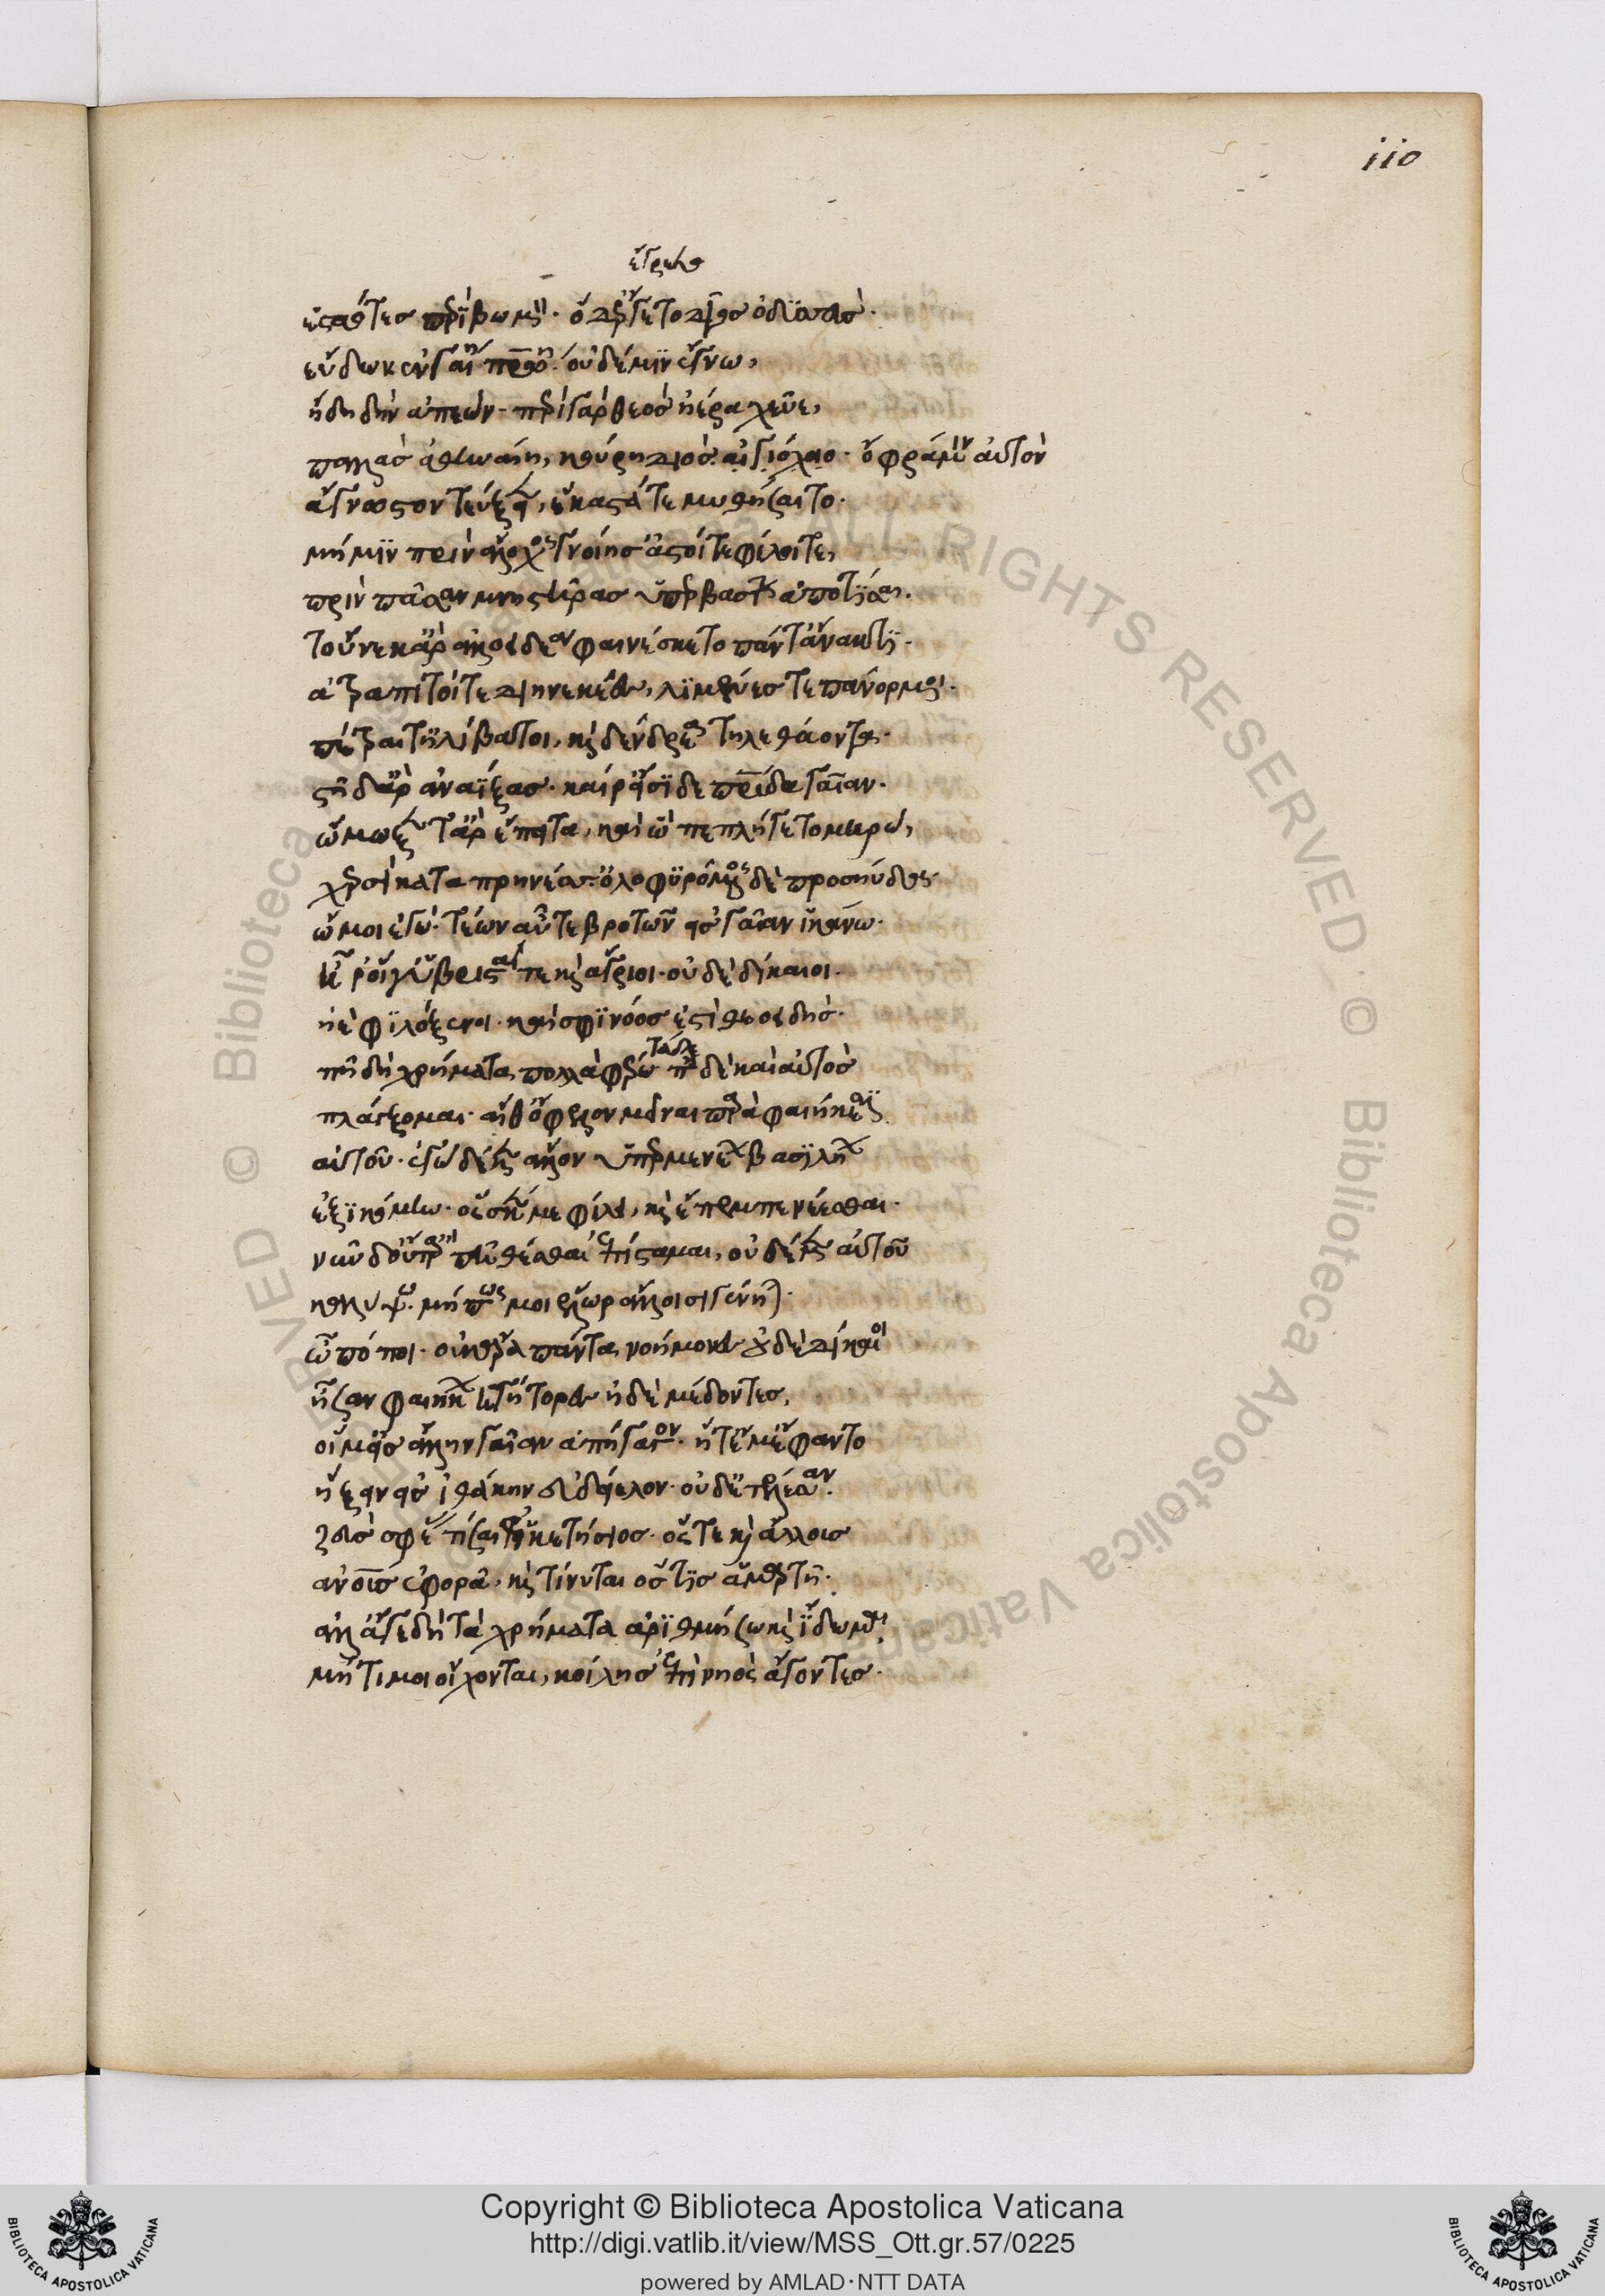 110
ἔγρετο
ἑσταότες περὶ βωμόν. ὁ δ' ἔγρετο δῖος ὀδυσσεὺς.
εὕδων ἐν γαίῃ πατρωΐῃ. οὐδέ μιν ἔγνω,
ἤδη δὴν ἀπεών. περὶ γὰρ θεὸς ἠέρα χεῦε,
παλλὰς ἀθηναίη, κούρη διὸς αἰγιόχοιο. ὄφρά μιν αὐτὸν
ἄγνωστον τεύξειεν, ἕκαστά τε μυθήσαιτο.
μή μιν πρὶν ἄλοχος γνοίης ἀστοί τε φίλοι τε,
πρὶν πᾶσαν μνηστῆρας ὑπερβασίην ἀποτῖσαι.
τοὔνεκ' ἄρ' ἀλλοειδέα φαινέσκετο πάντα ἄνακτι.
ἀτραπιτοί τε διηνεκέες, λιμένες τε πάνορμοι.
πέτραι τ' ἠλίβατοι, καὶ δένδρεα τηλεθάοντα.
στῆ δ' ἄρ' ἀναΐξας. καί ῥ' εἴσιδε πατρίδα γαῖαν.
ᾤμωξέν τ' ἄρ' ἔπειτα, καὶ ὣ πεπλήγετο μηρώ,
χερσὶ καταπρηνέσσ'. ὀλοφυρόμενος δὲ προσηύδα.
ὤμοι ἐγώ. τέων αὖτε βροτῶν ἐς γαῖαν ἱκάνω.
ἦ ῥ' οἵγ' ὑβρισταί τε καὶ ἄγριοι. οὐδὲ δίκαιοι.
ἠὲ φιλόξενοι. καί σφι νόος ἐστὶ θεουδής.
πῆ δὴ χρήματα πολλὰ φέρω τάδε πῆ δὲ καὶ αὐτὸς
πλάγξομαι. αἴθ' ὄφελον μεῖναι παρὰ φαιήκεσσιν
αὐτοῦ. ἐγὼ δέ κεν ἄλλον ὑπερμενέων βασιλήων
ἐξικόμην. ὅς κέν με φίλει, καὶ ἔπεμπε νέεσθαι.
νῦν δ' οὔτ' ἄρ πη θέσθαι ἐπίσταμαι, οὐδέ κεν αὐτοῦ
καλλείψω. μή πώς μοι ἕλωρ ἄλλοισι γένηται.
ὢ πόποι. οὐκ ἄρα πάντα νοήμονες οὐδὲ δίκαιοι
ἦσαν φαιήκων ἡγήτορες ἠδὲ μέδοντες,
οἵ μ' εἰς ἄλλην γαῖαν ἀπήγαγον. ἦ τέ μ' ἔφαντο
ἄξειν εἰς ἰθάκην εὐδείελον. οὐδ' ἐτέλεσσαν.
ζεὺς σφέας τίσαιτο ἱκετήσιος. ὅς τε καὶ ἄλλους
ἀνους ἐφορᾷ, καὶ τίνυται ὅς τις ἁμάρτῃ.
ἀλλ' ἄγε δὴ τὰ χρήματ' ἀριθμήσω καὶ ἴδωμαι.
μή τί μοι οἴχονται, κοίλης ἐπὶ νηὸς ἄγοντες.
Copyright © Biblioteca Apostolica Vaticana
http://digi.vatlib.it/view/MSS_Ott.gr.57/0225
powered by AMLAD·NTT DATA